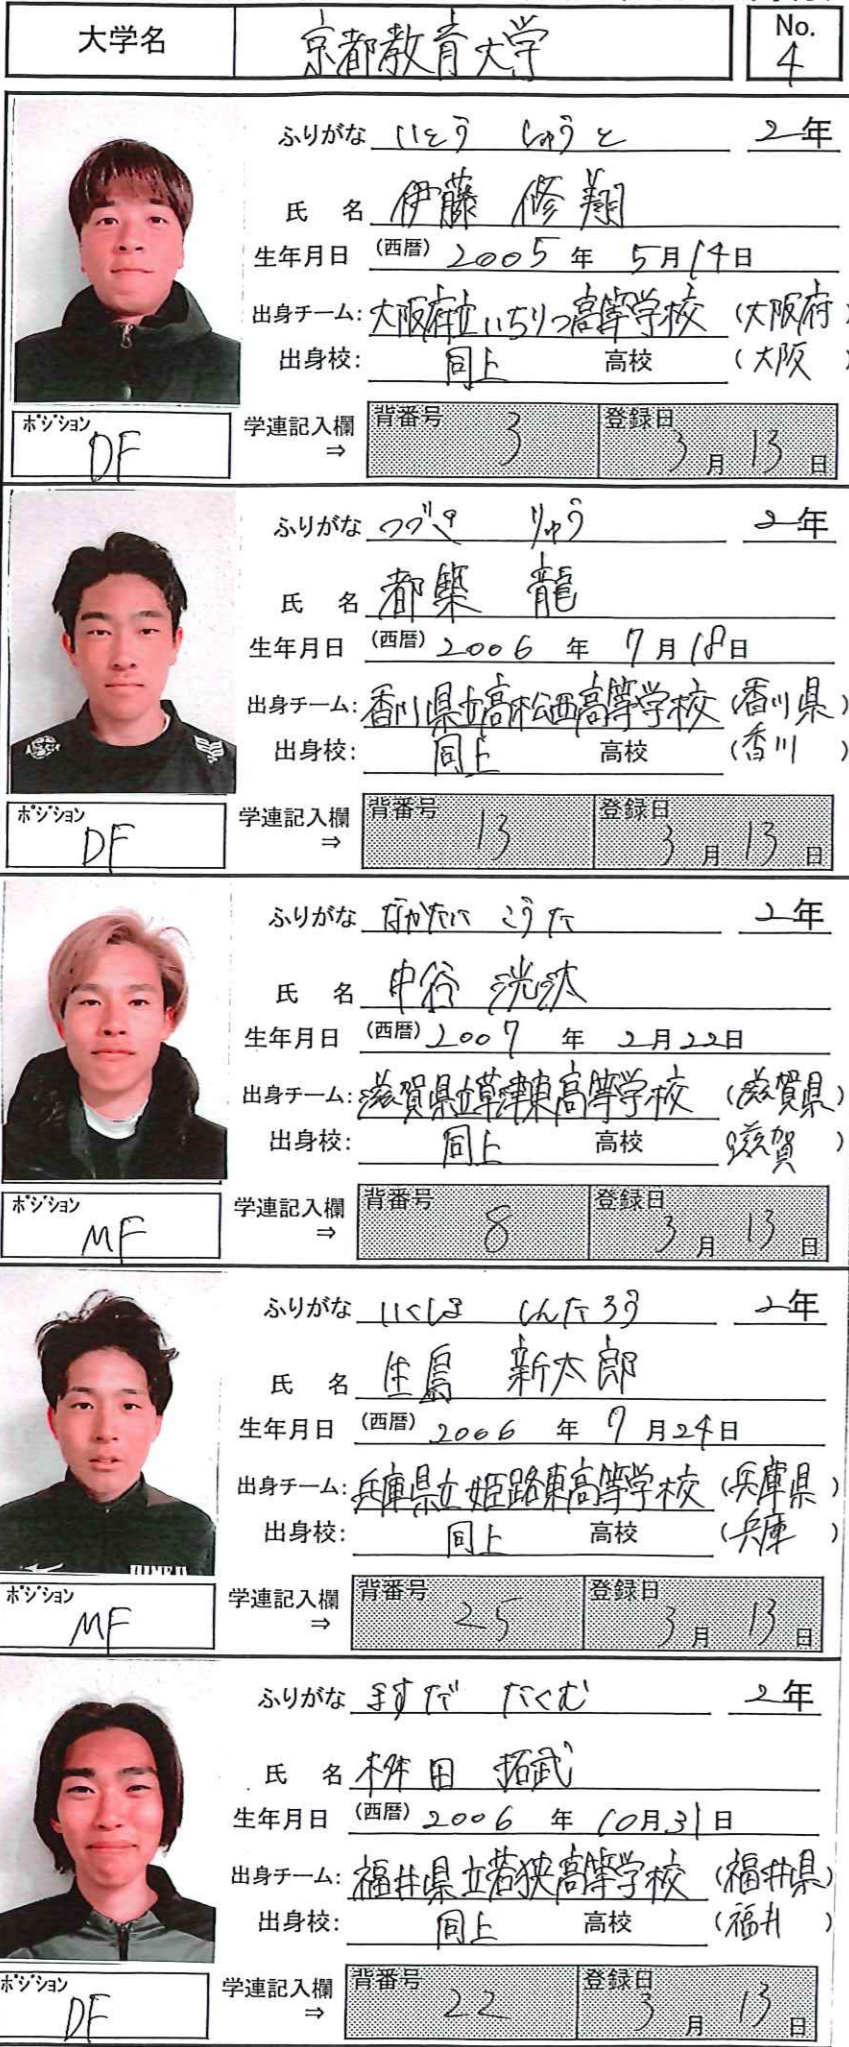 大学名 京都教育大学 No. 4
ふりがな いとう しゅうと 2年
氏 名 伊藤 修翔
生年月日 (西暦) 2005 年 5月14日
出身チーム: 大阪府立いちりつ高等学校 (大阪府)
出身校: 同上 高校 (大阪 )
ポジション DF 学連記入欄 ⇒ 背番号 3 登録日 3 月 13 日
ふりがな つづき りゅう 2年
氏 名 都築 龍
生年月日 (西暦) 2006 年 7月18日
出身チーム: 香川県立高松西高等学校 (香川県)
出身校: 同上 高校 (香川 )
ポジション DF 学連記入欄 ⇒ 背番号 13 登録日 3 月 13 日
ふりがな なかたに こうた 2年
氏 名 中谷 洸汰
生年月日 (西暦) 2007 年 2月22日
出身チーム: 滋賀県立草津東高等学校 (滋賀県)
出身校: 同上 高校 (滋賀 )
ポジション MF 学連記入欄 ⇒ 背番号 8 登録日 3 月 13 日
ふりがな いくしま しんたろう 2年
氏 名 生島 新太郎
生年月日 (西暦) 2006 年 7月24日
出身チーム: 兵庫県立姫路東高等学校 (兵庫県)
出身校: 同上 高校 (兵庫 )
ポジション MF 学連記入欄 ⇒ 背番号 25 登録日 3 月 13 日
ふりがな ますだ たくむ 2年
氏 名 桝田 拓武
生年月日 (西暦) 2006 年 10月31日
出身チーム: 福井県立若狭高等学校 (福井県)
出身校: 同上 高校 (福井 )
ポジション DF 学連記入欄 ⇒ 背番号 22 登録日 3 月 13 日